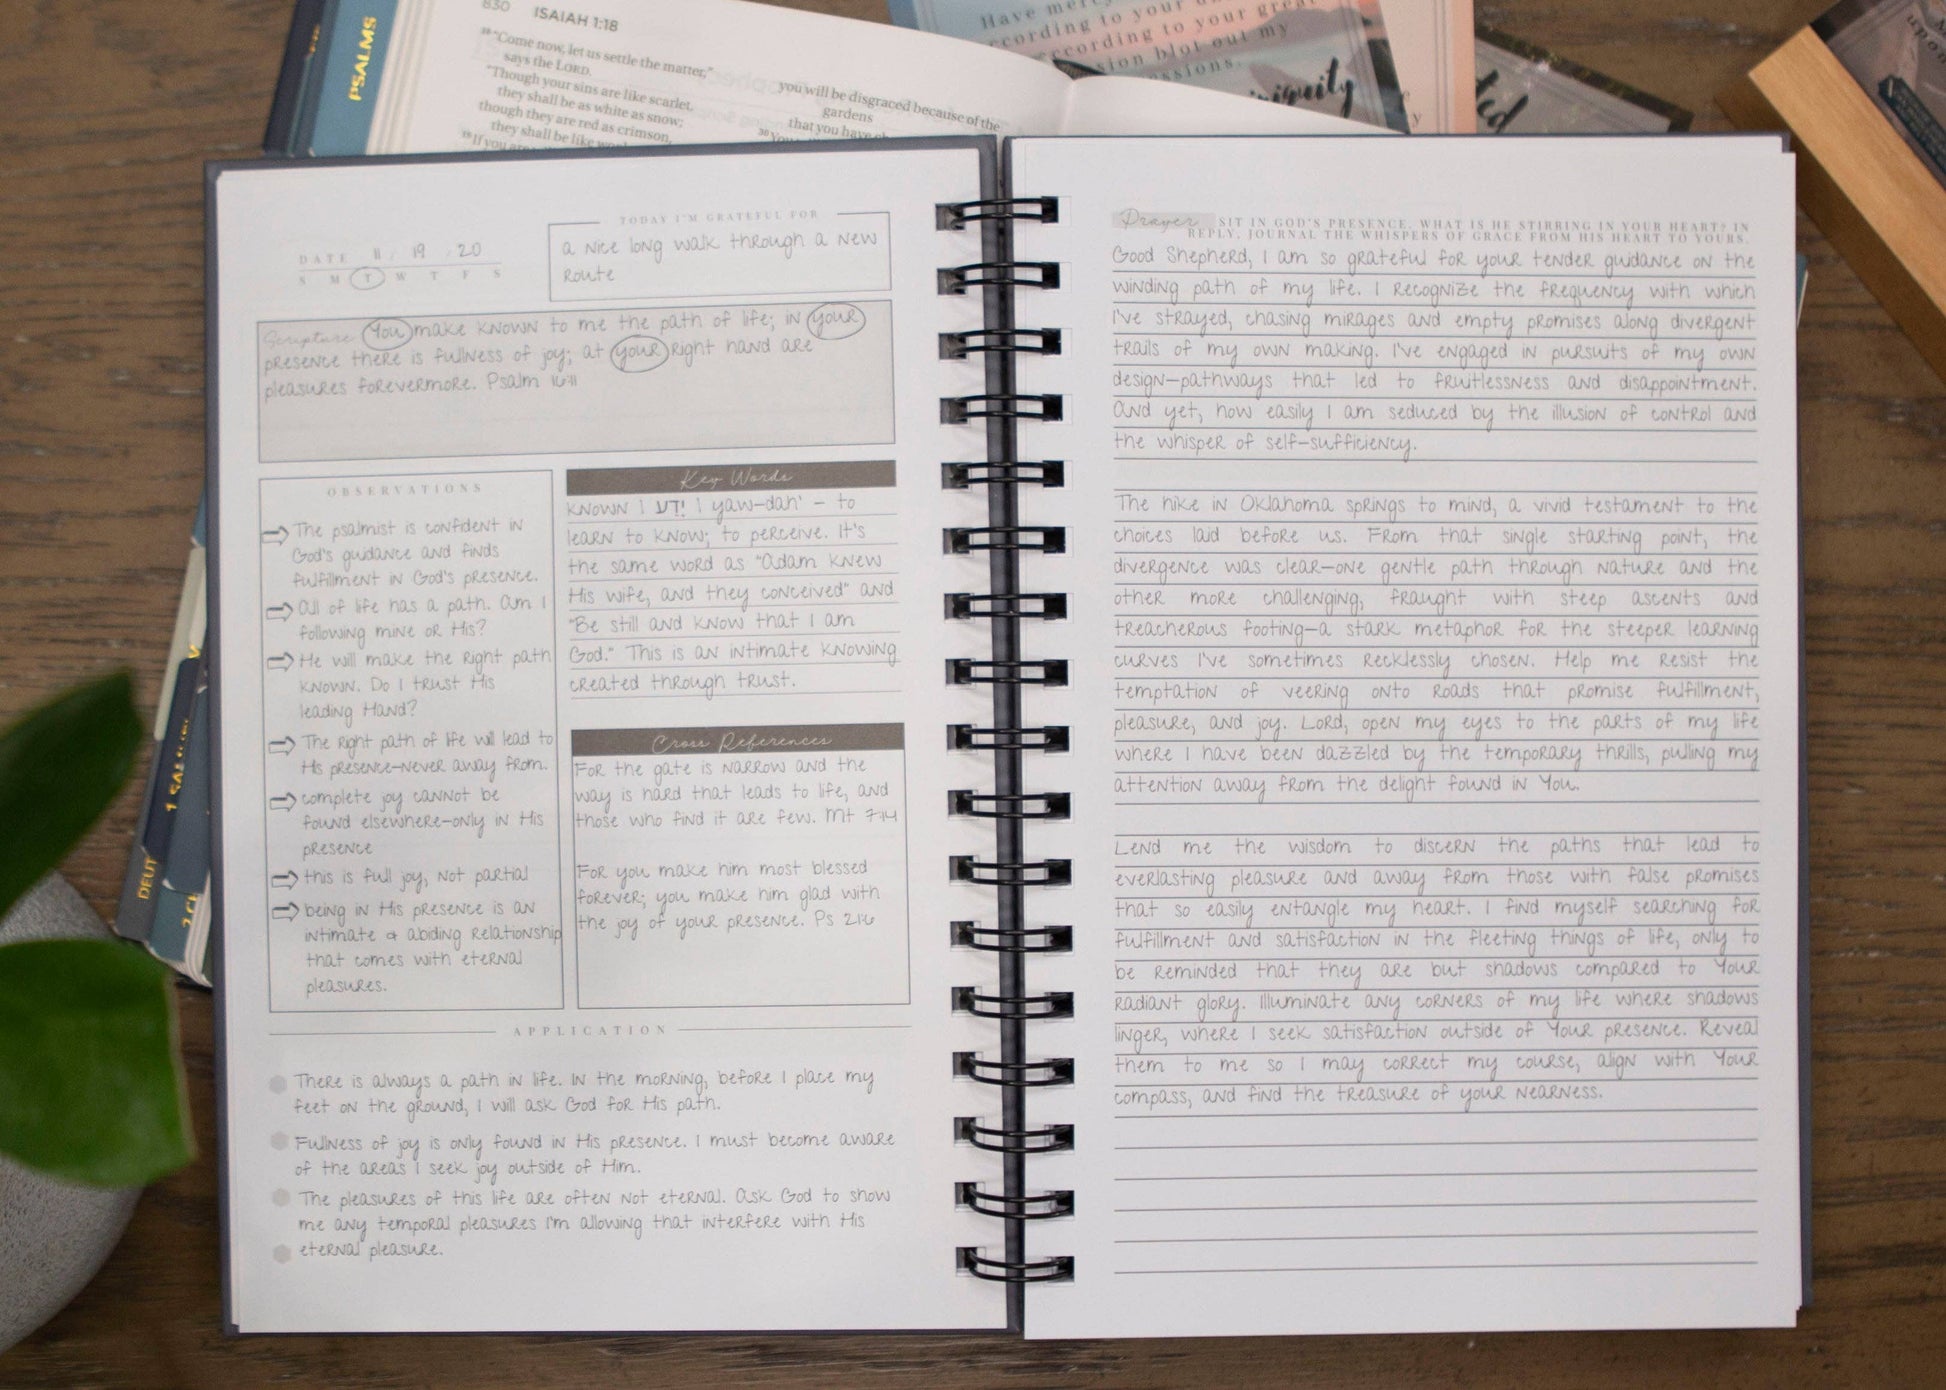 830 ISAIAH 1:18
18 "Come now, let us settle the matter,"
says the LORD.
"Though your sins are like scarlet,
they shall be as white as snow;
though they are red as crimson,
they shall be like
19 If you are
you will be disgraced because of the
gardens
that you have
30
PSALMS
Have mercy
according to your
according to your great
blot out my
iniquity
upon
1 SA
DEUT
2 CH
DATE 11 / 19 / 20
S M T W T F S
TODAY I'M GRATEFUL FOR
a nice long walk through a new
route
Scripture You make known to me the path of life; in your
presence there is fullness of joy; at your right hand are
pleasures forevermore. Psalm 16:11
OBSERVATIONS
⇨ The psalmist is confident in
God's guidance and finds
fulfillment in God's presence.
⇨ All of life has a path. Am I
following mine or His?
⇨ He will make the right path
known. Do I trust His
leading Hand?
⇨ The right path of life will lead to
His presence—never away from.
⇨ complete joy cannot be
found elsewhere—only in His
presence
⇨ this is full joy, not partial
⇨ being in His presence is an
intimate & abiding relationship
that comes with eternal
pleasures.
Key Words
known | יָדַע | yaw-dah' – to
learn to know; to perceive. It's
the same word as "Adam knew
His wife, and they conceived" and
"Be still and know that I am
God." This is an intimate knowing
created through trust.
Cross References
For the gate is narrow and the
way is hard that leads to life, and
those who find it are few. Mt 7:14
For you make him most blessed
forever; you make him glad with
the joy of your presence. Ps 21:6
APPLICATION
There is always a path in life. In the morning, before I place my
feet on the ground, I will ask God for His path.
Fullness of joy is only found in His presence. I must become aware
of the areas I seek joy outside of Him.
The pleasures of this life are often not eternal. Ask God to show
me any temporal pleasures I'm allowing that interfere with His
eternal pleasure.
Prayer SIT IN GOD'S PRESENCE. WHAT IS HE STIRRING IN YOUR HEART? IN
REPLY, JOURNAL THE WHISPERS OF GRACE FROM HIS HEART TO YOURS.
Good Shepherd, I am so grateful for your tender guidance on the
winding path of my life. I recognize the frequency with which
I've strayed, chasing mirages and empty promises along divergent
trails of my own making. I've engaged in pursuits of my own
design—pathways that led to fruitlessness and disappointment.
And yet, how easily I am seduced by the illusion of control and
the whisper of self-sufficiency.
The hike in Oklahoma springs to mind, a vivid testament to the
choices laid before us. From that single starting point, the
divergence was clear—one gentle path through nature and the
other more challenging, fraught with steep ascents and
treacherous footing—a stark metaphor for the steeper learning
curves I've sometimes recklessly chosen. Help me resist the
temptation of veering onto roads that promise fulfillment,
pleasure, and joy. Lord, open my eyes to the parts of my life
where I have been dazzled by the temporary thrills, pulling my
attention away from the delight found in You.
Lend me the wisdom to discern the paths that lead to
everlasting pleasure and away from those with false promises
that so easily entangle my heart. I find myself searching for
fulfillment and satisfaction in the fleeting things of life, only to
be reminded that they are but shadows compared to Your
radiant glory. Illuminate any corners of my life where shadows
linger, where I seek satisfaction outside of Your presence. Reveal
them to me so I may correct my course, align with Your
compass, and find the treasure of your nearness.